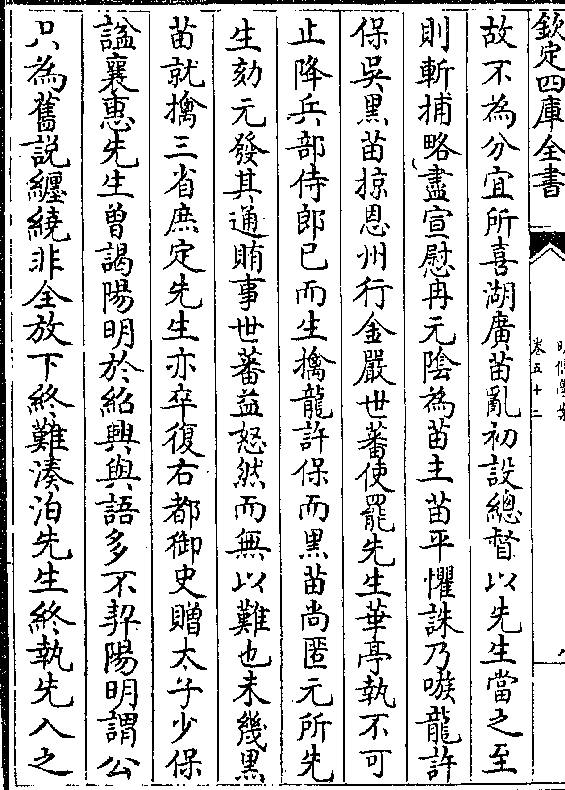 欽定四庫全書
明儒學案
卷五十二
故不為分宜所喜湖廣苗亂初設總督以先生當之至
則斬捕略盡宣慰冉元陰為苗主苗平懼誅乃嗾龍許
保吳黑苗掠思州行金嚴世蕃使罷先生華亭執不可
止降兵部侍郎已而生擒龍許保而黑苗尚匿元所先
生劾元發其通賄事世蕃益怒然而無以難也未幾黑
苗就擒三省底定先生亦卒復右都御史贈太子少保
諡襄惠先生曾謁陽明於紹興與語多不契陽明謂公
只為舊説纏繞非全放下終難湊泊先生終執先入之